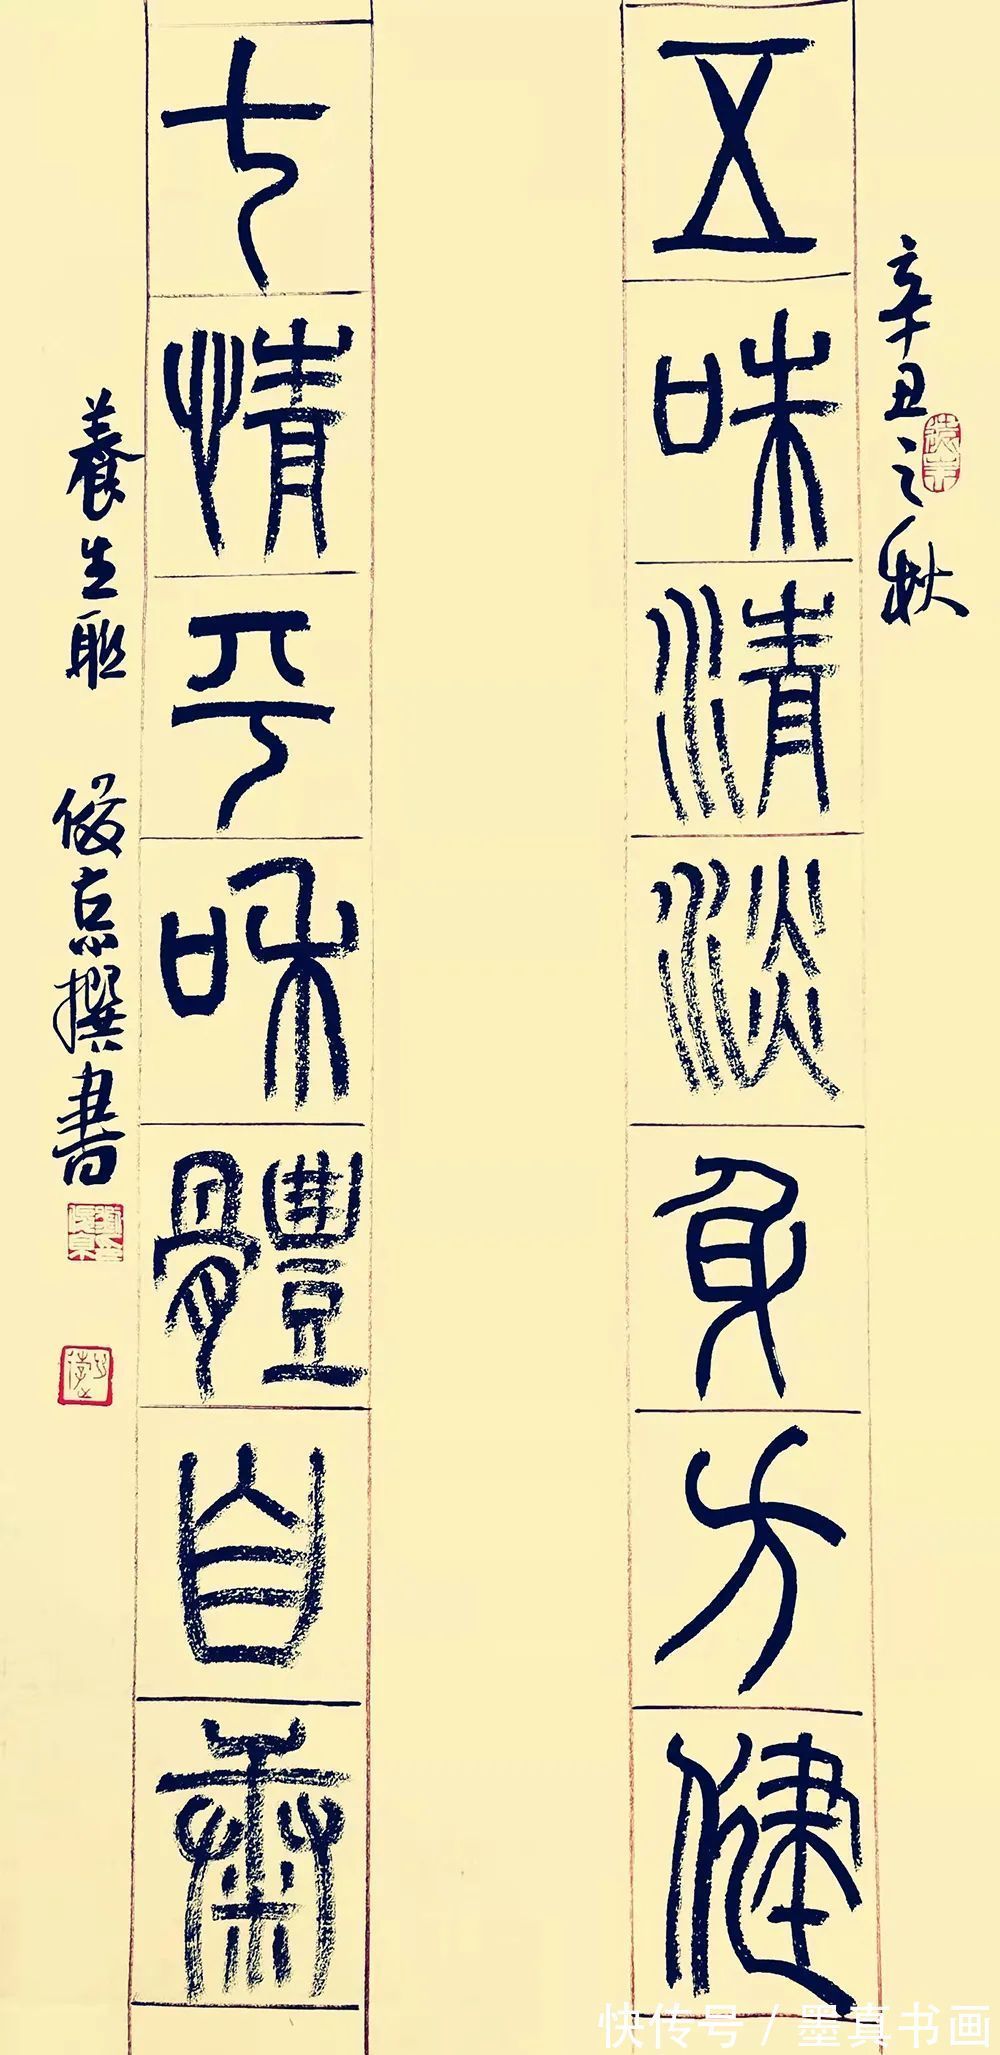 辛丑之秋
五味清淡身方健
七情平和體自康
養生聯 俊京撰書
快传号 / 墨真书画